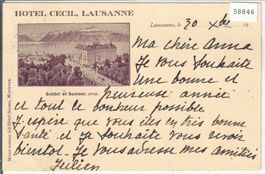 HOTEL CECIL, LAUSANNE
58846
Lausanne, le 30 Xbre 19
Ma chère Anna
Je vous souhaite
une bonne et
heureuse année
Schört et Sumser, prop.
et tout le bonheur possible
J'espère que vous êtes en très bonne
santé et je souhaite vous revoir
bientot. Je vous adresse mes amitiés
Julien
Même maison: Gd Hôtel Suisse, Montreux.